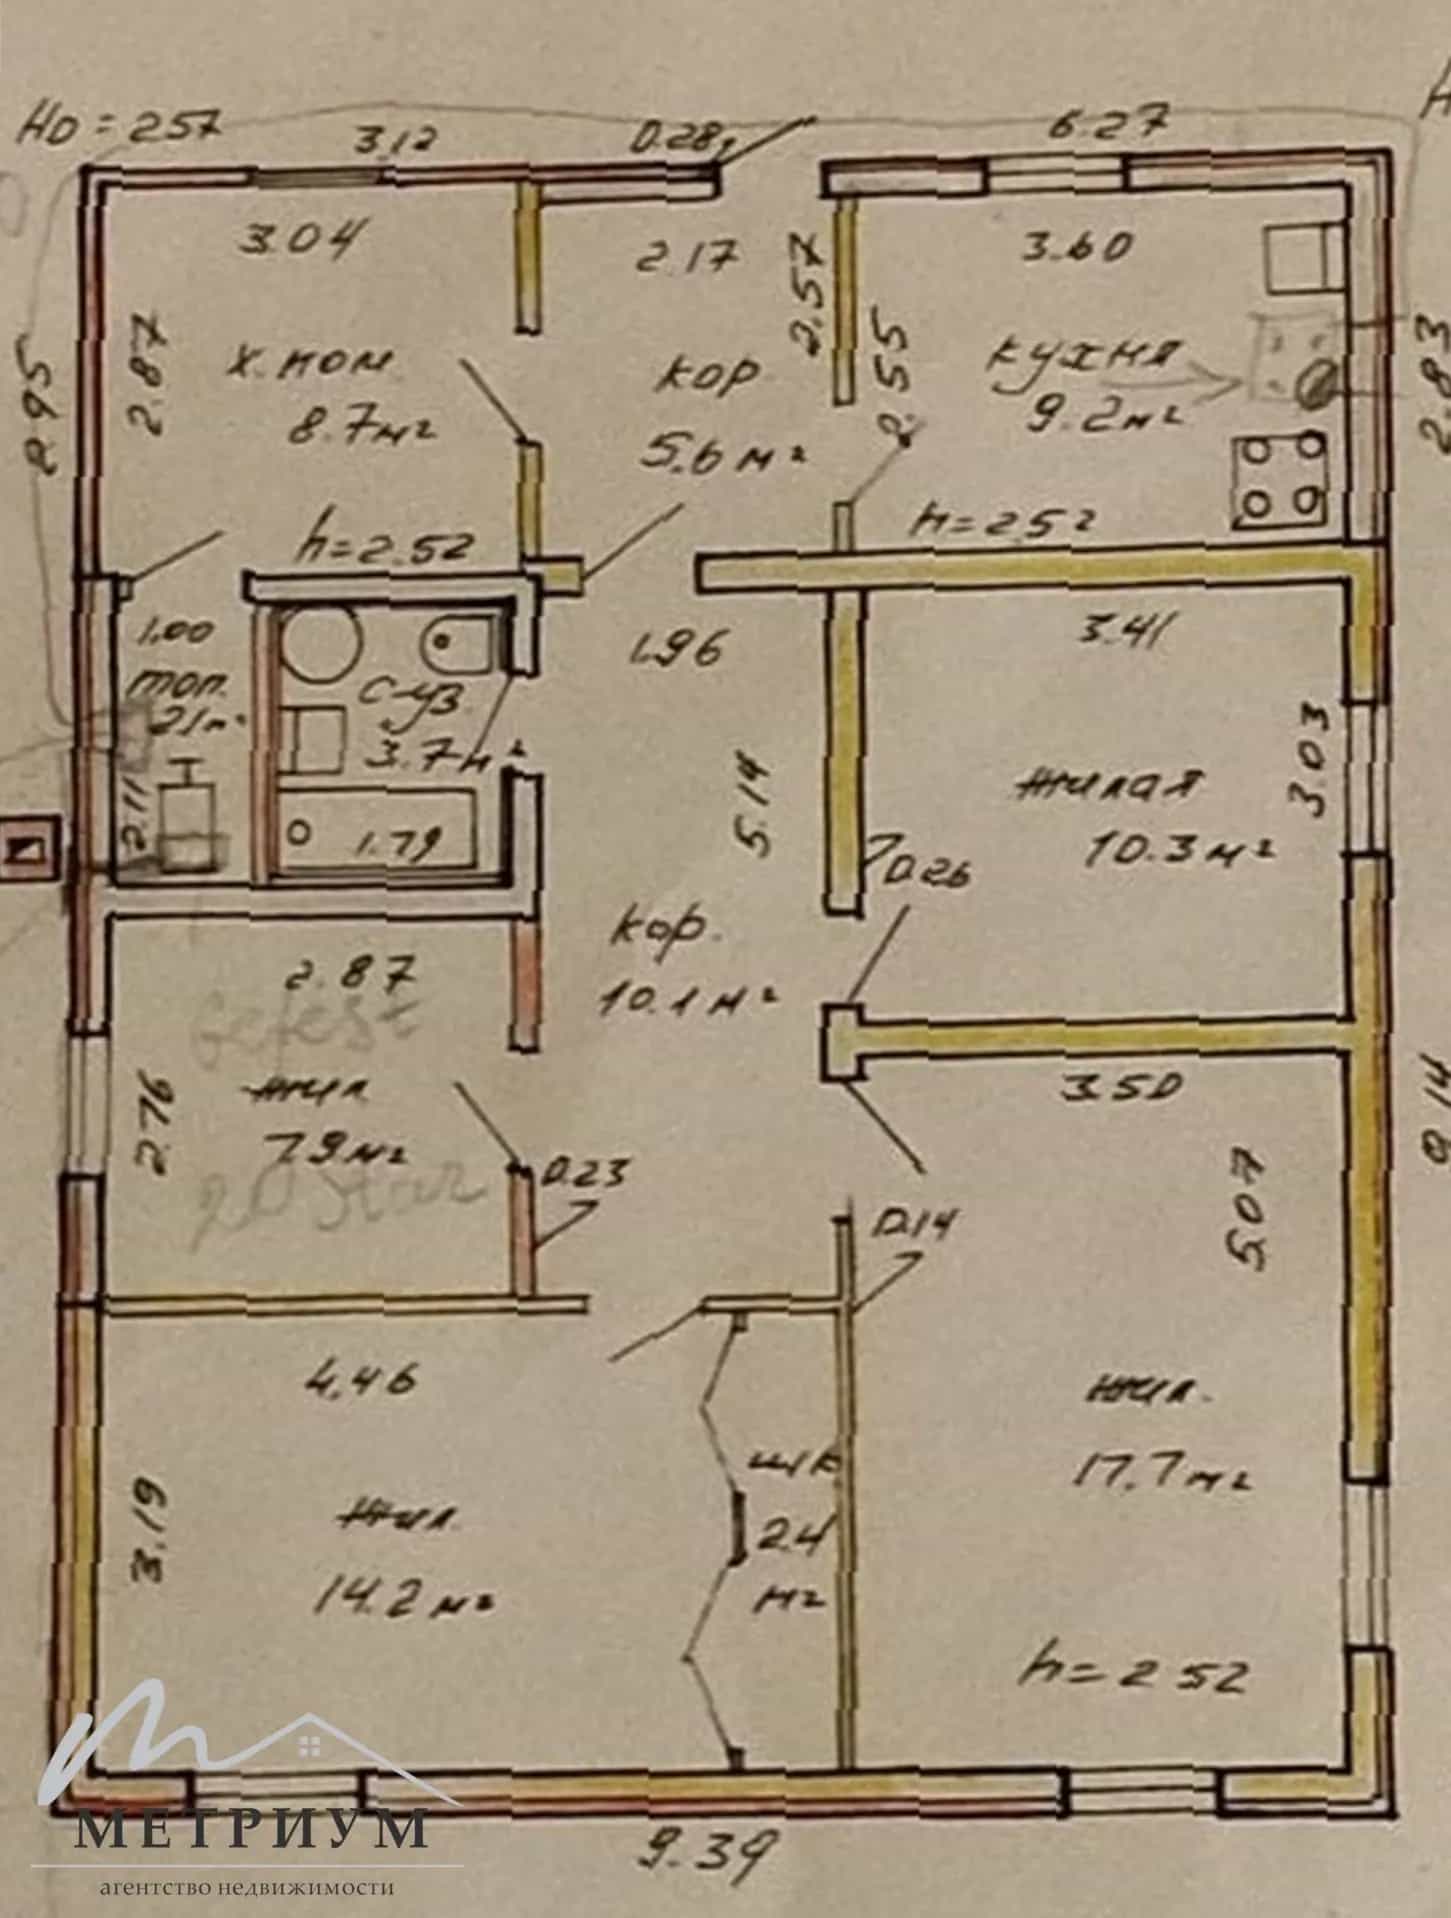 Но = 257
3.12
0.28
6.27
3.04
2.17
2.57
3.60
2.95
2.87
х. пом.
8.7 м²
кор
5.6 м²
2.55
кухня
9.2 м²
2.83
h = 2.52
h = 2.52
1.00
топ.
2.1 м²
2.11
с.уз.
3.7 м²
1.79
1.96
5.14
3.41
3.03
жилая
10.3 м²
0.26
кор.
10.1 м²
2.87
Gefest
2.76
жил
7.9 м²
0.23
3.50
5.07
9.14
0.14
4.46
3.19
жил.
14.2 м²
шк
2.4
м²
жил.
17.7 м²
h = 2.52
9.39
МЕТРИУМ
агентство недвижимости